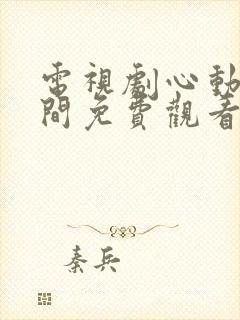 電視劇心動
間免費觀看
秦兵